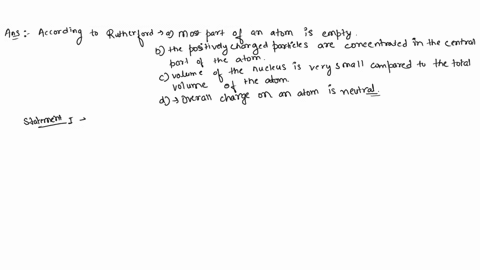 Ans :- According to Rutherford → a) most part of an atom is empty.
b) the positively charged particles are concentrated in the central
part of the atom.
c) volume of the nucleus is very small compared to the total
volume of the atom.
d) → Overall charge on an atom is neutral.
Statement I →